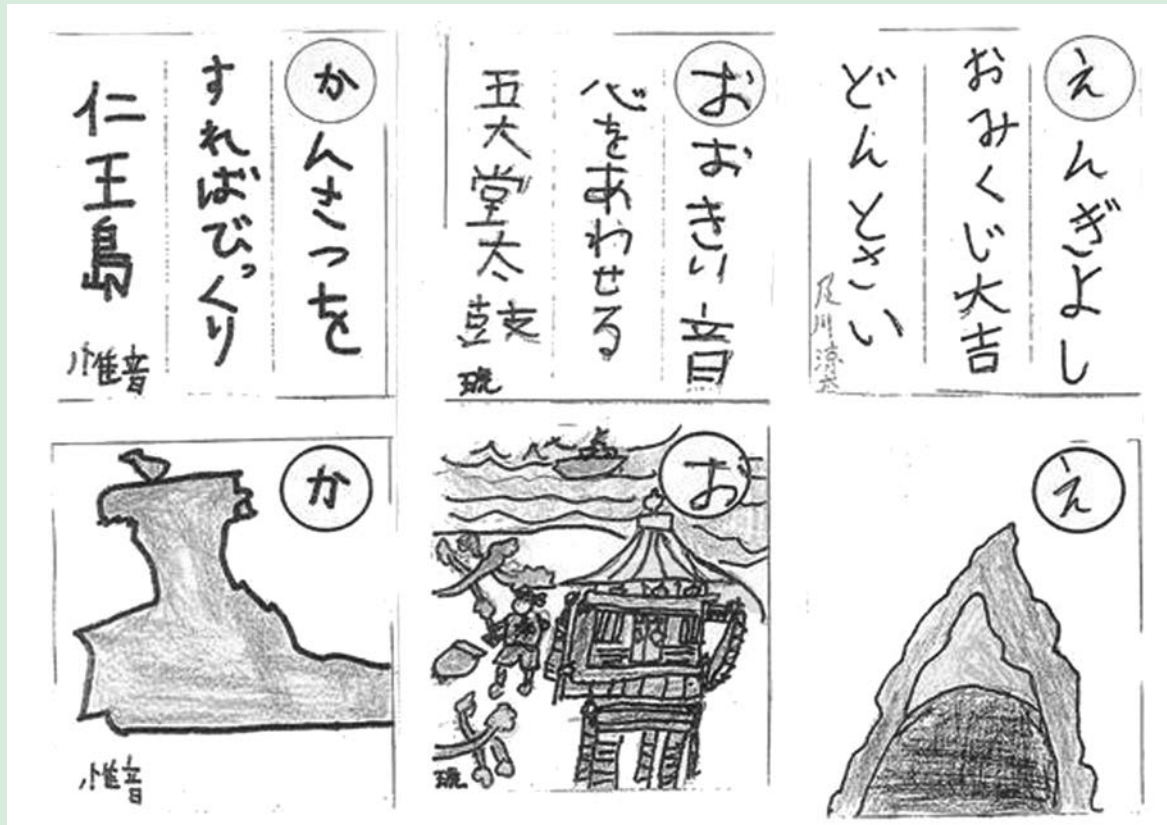 えんぎよし
おみくじ大吉
どんとさい
及川涼太
おおきい音
心をあわせる
五大堂太鼓
琉
かんさつを
すればびっくり
仁王島
惟音
え
お
琉
か
惟音